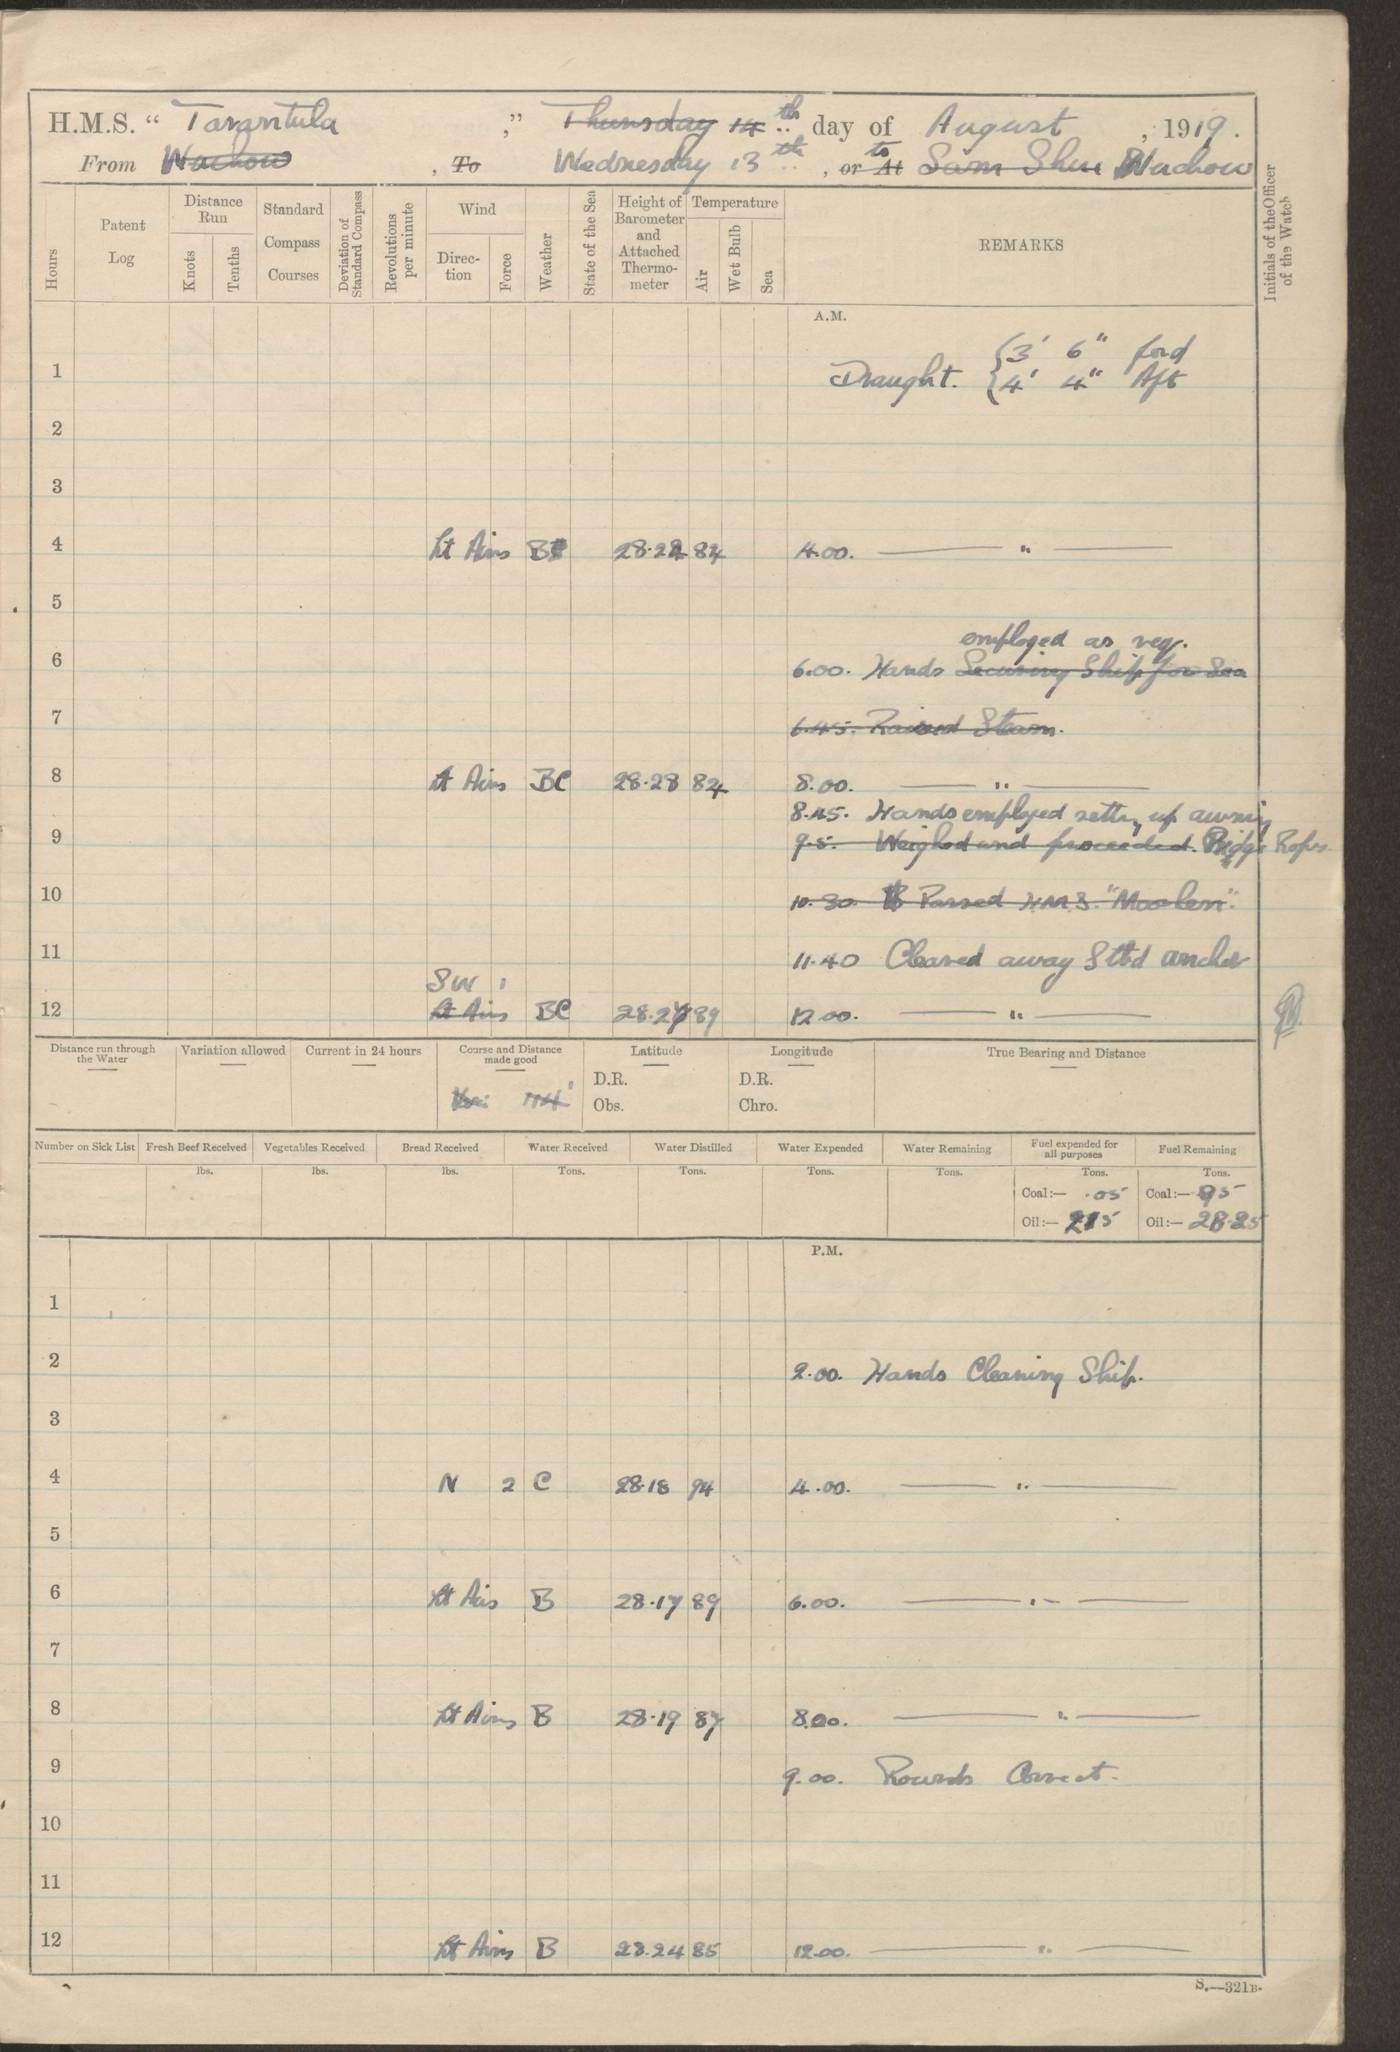 H.M.S. “ Tarantula ,” Thursday 14 th day of August , 1919.
From Wuchow , To Wednesday 13 th , or At to Sam Shui Wuchow
Hours Patent Log Distance Run Knots Tenths Standard Compass Courses Deviation of Standard Compass Revolutions per minute Wind Direction Force Weather State of the Sea Height of Barometer and Attached Thermometer Temperature Air Wet Bulb Sea REMARKS Initials of the Officer of the Watch
A.M.
3' 6" ford
1 Draught. 4' 4" Aft
2
3
4 Lt Airs B 28.28 84 4.00. — " —
5
employed as req.
6 6.00. Hands Securing Ship for Sea
7 6.45. Raised Steam.
8 Lt Airs BC 28.28 84 8.00. — " —
8.45. Hands employed setting up awning
9 9.5. Weighed and proceeded. Ridge Ropes.
10 10.30 Passed H.M.S. "Moorhen".
11 11.40 Cleared away Stbd anchor
SW 1
12 Lt Airs BC 28.27 89 12.00. — " —
Distance run through the Water Variation allowed Current in 24 hours Course and Distance made good Latitude Longitude True Bearing and Distance
D.R. D.R.
Obs. Chro.
Number on Sick List Fresh Beef Received Vegetables Received Bread Received Water Received Water Distilled Water Expended Water Remaining Fuel expended for all purposes Fuel Remaining
lbs. lbs. lbs. Tons. Tons. Tons. Tons. Tons. Tons.
Coal:— .05 Coal:— 95
Oil:— 215 Oil:— 28.25
P.M.
1
2 2.00. Hands Cleaning Ship.
3
4 N 2 C 28.18 94 4.00. — " —
5
6 Lt Airs B 28.17 89 6.00. — " —
7
8 Lt Airs B 28.19 87 8.00. — " —
9 9.00. Rounds Correct.
10
11
12 Lt Airs B 28.24 85 12.00. — " —
S.—321B.